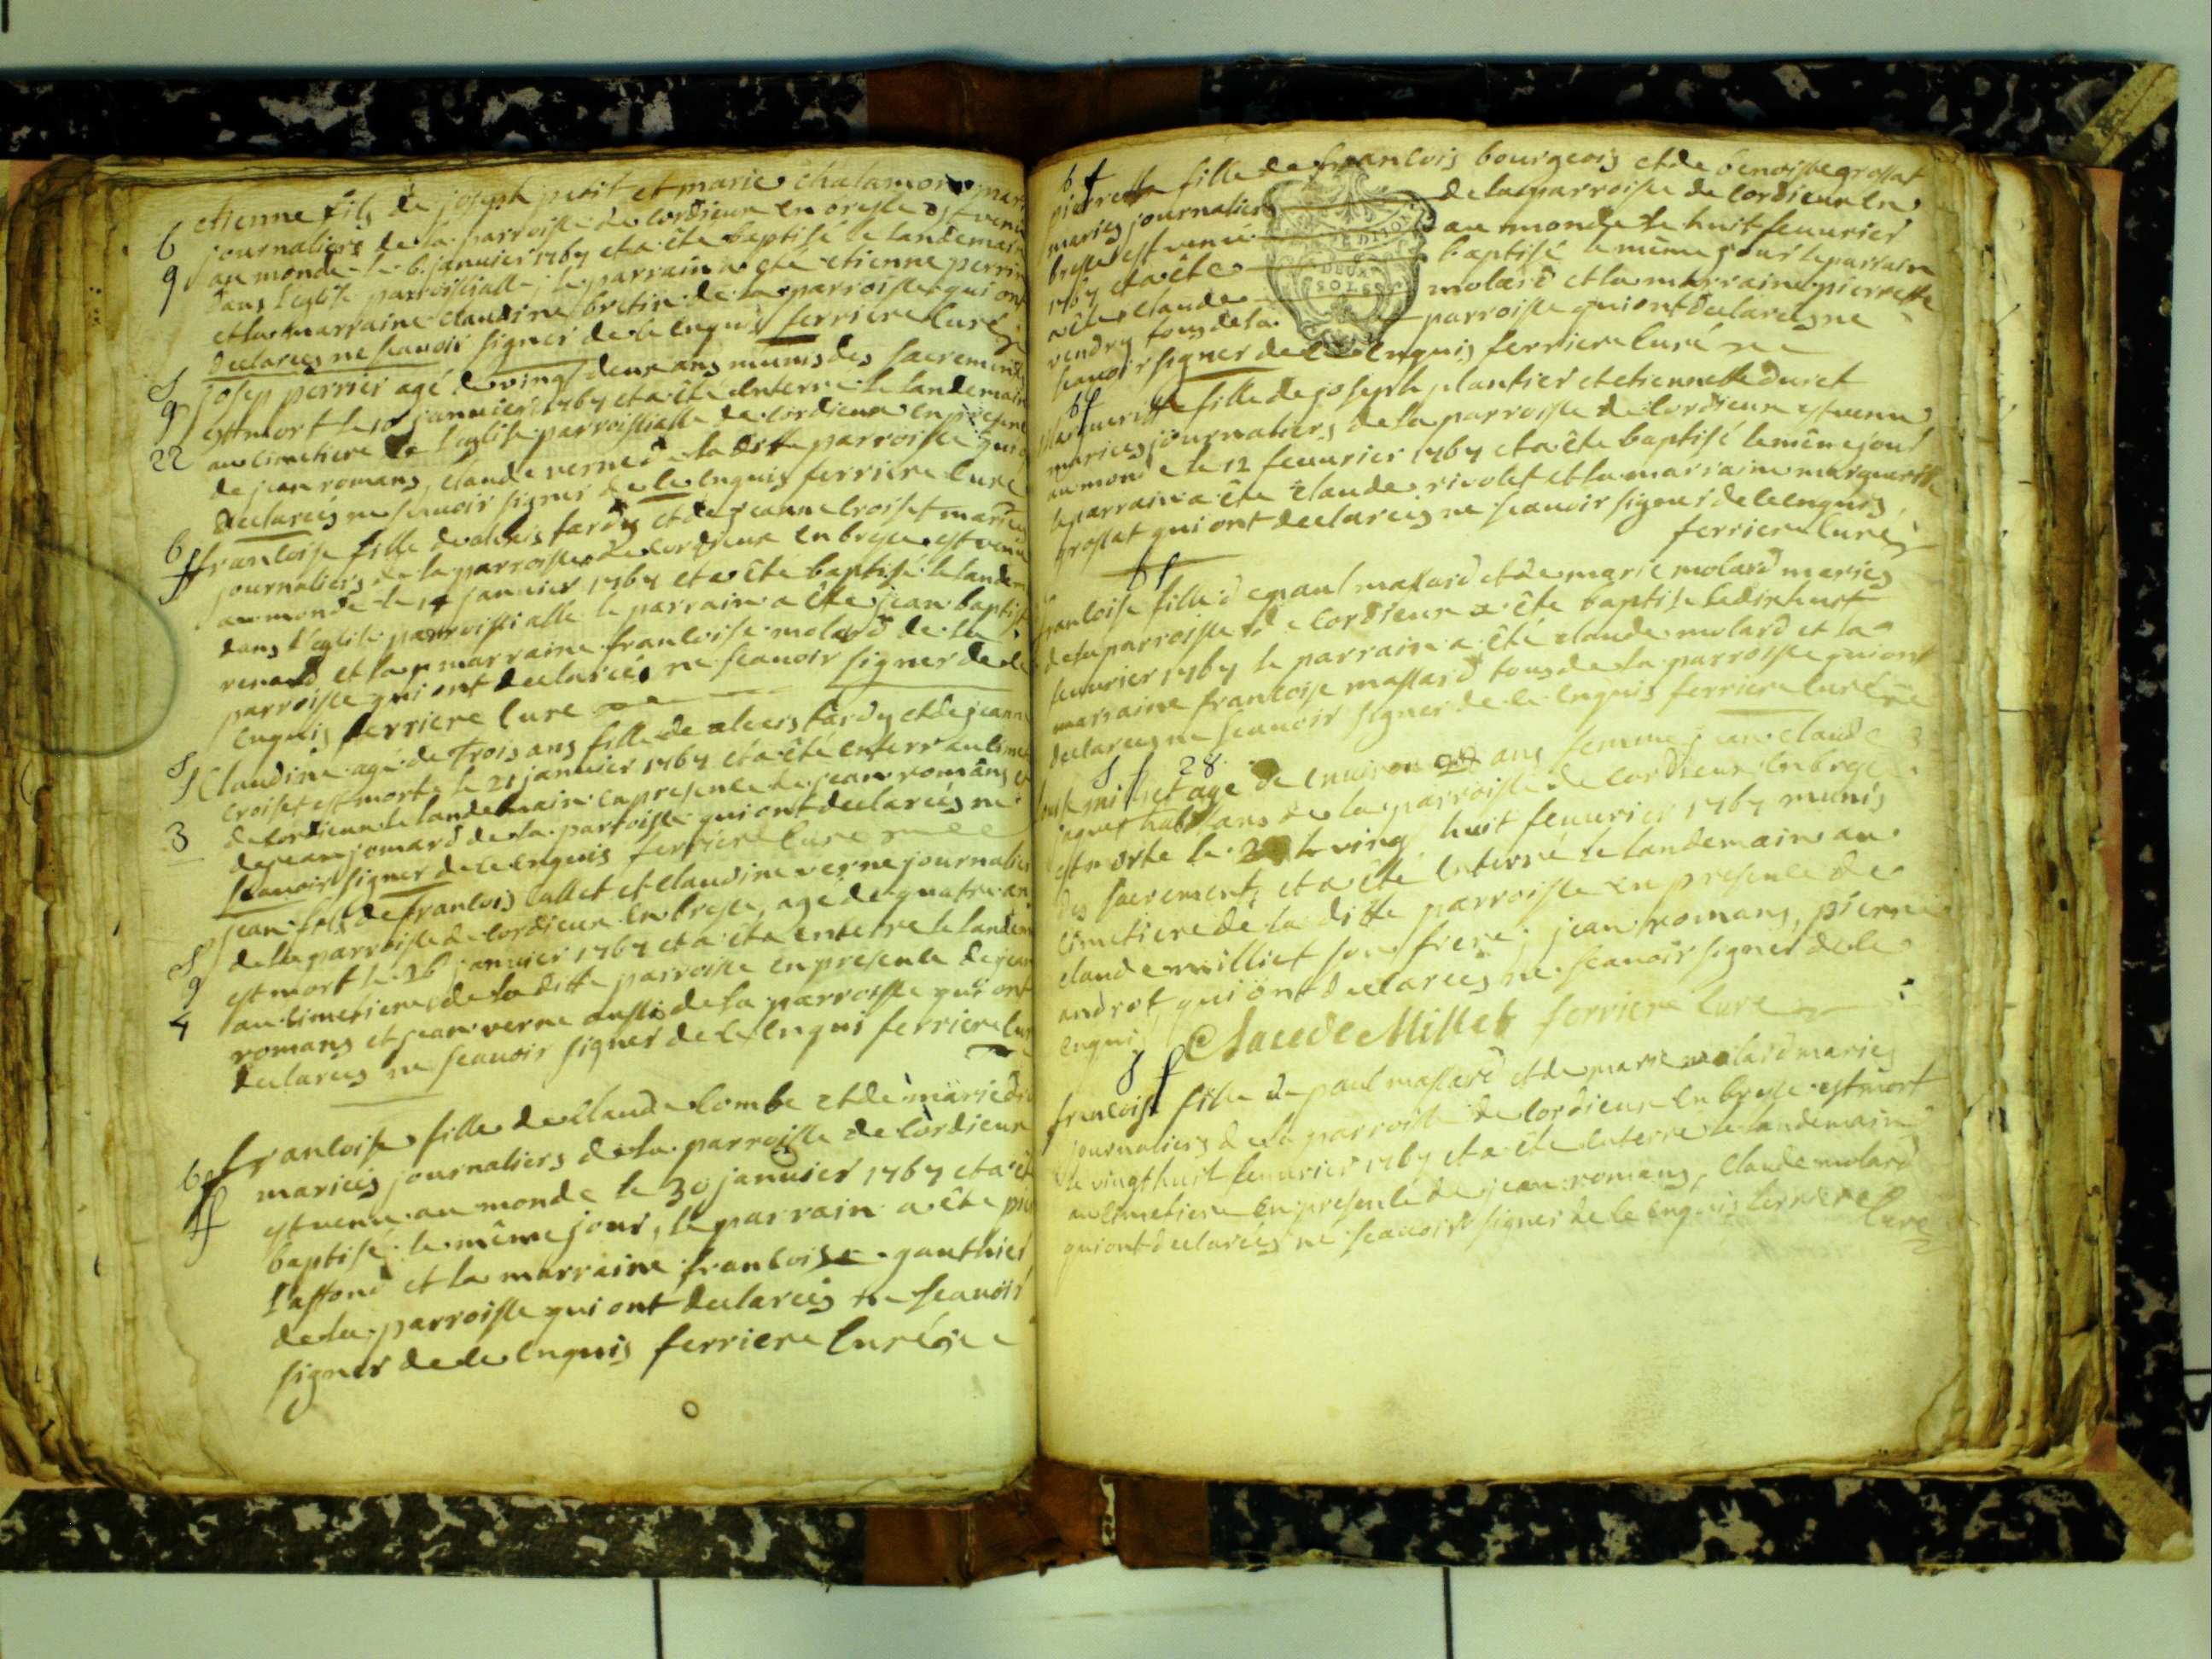 b
g
etienne fils de joseph petit et marie chalamon mari
journaliers de la parroisse de cordieux en bresse est venu
au monde le 6 janvier 1767 et a été baptisé le landemain
dans l'eglise parroissialle, le parrain a été etienne perrin
et la marraine claudine bretin de la parroisse qui ont
declareés ne scauoir signer de ce enquis ferriere curé
S
g
22
josep perrier agé de vingt deux ans munis des sacrements
est mort le 10 januier 1767 et a été enterré le landemain
au cimetiere de l'eglise parroissialle de cordieux en presence
de jean romans, claude verne de la ditte parroisse qui
declareés ne scauoir signer de ce enquis ferriere curé
b
f
francoise fille de alexis tardy et de jeanne croiset mariés
journaliers de la parroisse de cordieux en bresse est venu
au monde le 14 januier 1767 et a été baptisé le lande
dans l'eglise parroissialle le parrain a été jean baptist
renard et la marraine francoise molard de la
parroisse qui ont declareés ne scauoir signer de ce
enquis ferriere curé
S
f
3
Claudine agé de trois ans fille de alexis tardy et de jeanne
croiset est morte le 21 januier 1767 et a été enterré au cime
de cordieux le landemain en presence de jean romans et
de jean jomard de la parroisse qui ont declareés ne
scauoir signer de ce enquis ferriere curé
S
g
4
jean fils de francois callet et claudine verne journalier
de la parroisse de cordieux en bresse, agé de quatre an
est mort le 26 januier 1767 et a été enterré le landem
au cimetiere de la ditte parroisse en presence de jean
romans et jean verne aussi de la parroisse qui ont
declareés ne scauoir signer de ce enquis ferriere cur
b
f
francoise fille de claude combe et de marie
mariés journaliers de la parroisse de cordieux
est venu au monde le 30 januier 1767 et a été
baptisé le même jour, le parrain a été
laffond et la marraine francoise gauthier
de la parroisse qui ont declareés ne scauoir
signer de ce enquis ferriere curé
b f
pierrette fille de francois bourgeois et de benoiste grossat
mariés journaliers de la parroisse de cordieux en
bresse est venue au monde le huit feuurier
1767 et a été baptisé le même jour le parrain
a été claude molard et la marraine pierrette
vendry tous de la parroisse qui ont declareés ne
scauoir signer de ce enquis ferriere curé
DEUX
SOLS
b f
Marguerite fille de joseph plantier et etiennette duret
mariés journaliers de la parroisse de cordieux est venue
au monde le 12 feuurier 1767 et a été baptisé le même jour
le parrain a été claude rivolet et la marraine marguerite
grossat qui ont declareés ne scauoir signer de ce enquis
ferriere curé
b f
francoise fille de paul massard et de marie molard mariés
de la parroisse de cordieux a été baptisé le dixhuit
feuurier 1767 le parrain a été claude molard et la
marraine francoise massard tous de la parroisse qui ont
declareés ne scauoir signer de ce enquis ferriere curé
S f 28
agé de enuiron ans femme jean claude
habitans de la parroisse de cordieux en bresse
est morte le vingt huit feuurier 1767 munis
des sacrements et a été enterré le landemain au
cimetiere de la ditte parroisse en presence de
claude milliet son frere, jean romans, pierre
androt qui ont declareés ne scauoir signer de ce
enquis Claude Milliet ferriere curé
S f
francoise fille de paul massard et de marie molard mariés
journaliers de la parroisse de cordieux en bresse est mort
le vingt huit feuurier 1767 et a été enterré le landemain
au cimetiere en presence de jean romans, claude molard
qui ont declareés ne scauoir signer de ce enquis ferriere
curé